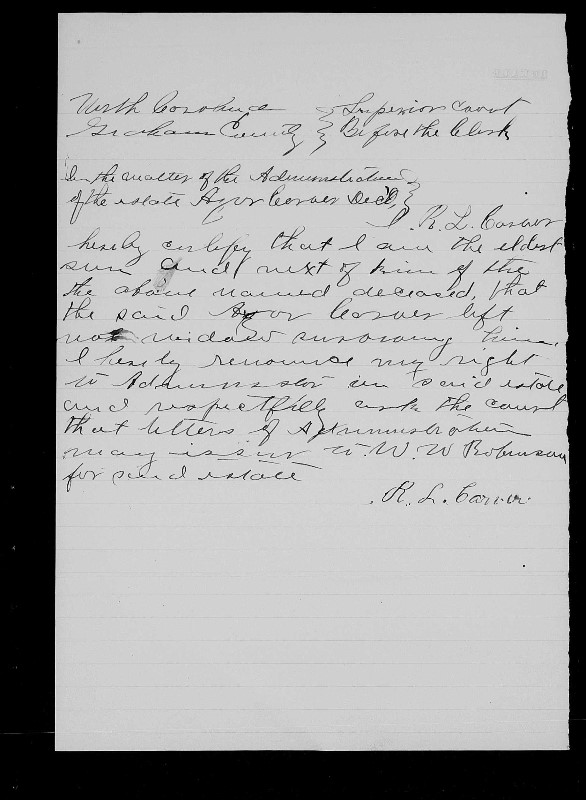 North Carolina } Superior Court
Graham County } Before the Clerk
In the matter of the Administration }
of the estate Azor Carver Dec'd, }
I R. L. Carver
hereby certify that I am the eldest
sun and next of kin of the
the above named deceased, that
the said Azor Carver left
no widow surviving him,
I hereby renounce my right
to Adminsster in said estate
and respectfully ask the court
that letters of Administration
may issue to W. W Robinson
for said estate
R. L. Carver